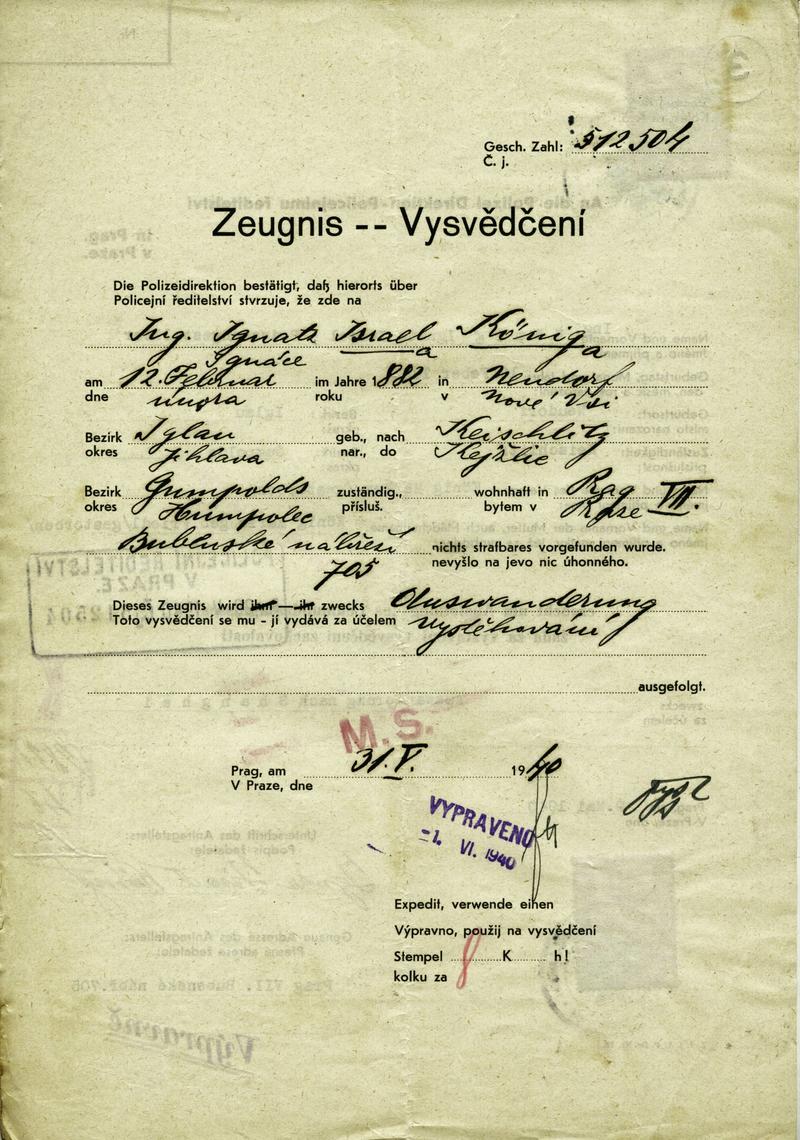 Gesch. Zahl: 512504
Č. j.
Zeugnis -- Vysvědčení
Die Polizeidirektion bestätigt, daß hierorts über
Policejní ředitelství stvrzuje, že zde na
Ing. Ignatz Israel König
Ignáce a a
am 12. Februar im Jahre 1882 in Neudorf
dne února roku v Nové Vsi
Bezirk Iglau geb., nach Keischlitz
okres Jihlava nar., do Kejžlic
Bezirk Gumpolds zuständig., wohnhaft in Prag VII.
okres Humpolec přísluš. bytem v Praze
Bubenské nábřeží nichts strafbares vorgefunden wurde.
705 nevyšlo na jevo nic úhonného.
Dieses Zeugnis wird ihm — ihr zwecks Auswanderung
Toto vysvědčení se mu - jí vydává za účelem vystěhování
ausgefolgt.
M.S.
Prag, am 31. V. 1940
V Praze, dne
VYPRAVENO
-1. VI. 1940
Expedit, verwende einen
Výpravno, použij na vysvědčení
Stempel 8 K h!
kolku za